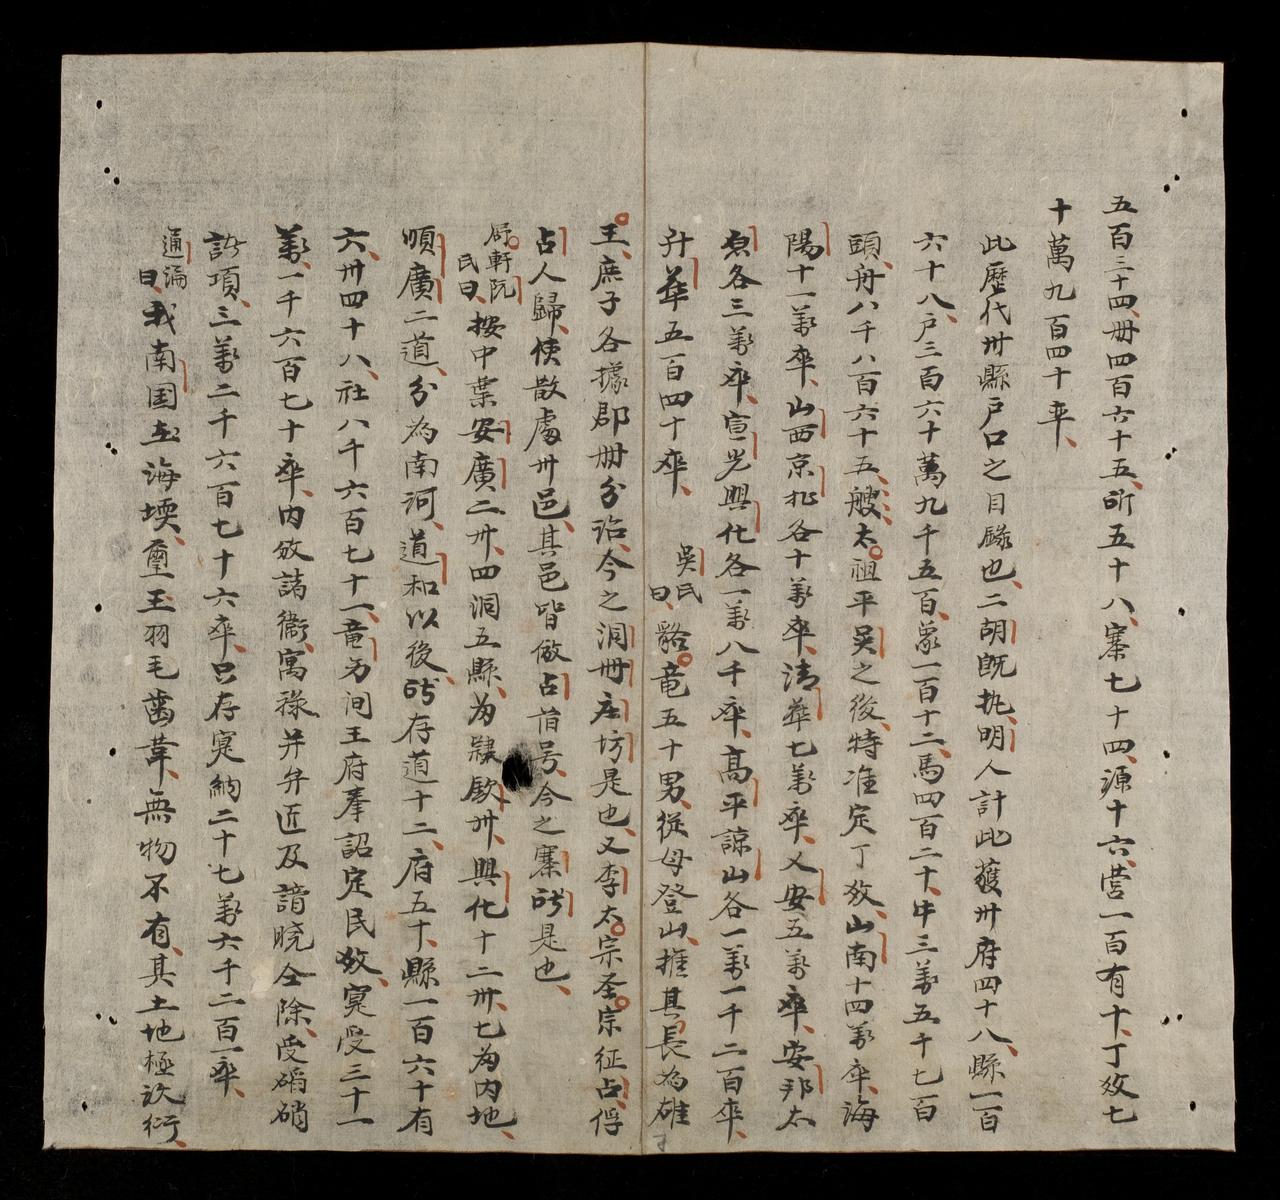 五百三十四册四百六十五所五十八寨七十四源十六营一百有十丁数七
十萬九百四十率
此歷代卅縣戸口之目錄也二胡既执明人計此獲卅府四十八縣一百
六十八戸三百六十萬九千五百象一百十二馬四百二十牛三萬五千七百
頭舟八千八百六十五艘太祖平吴之後特准定丁数山南十四萬率海
陽十一萬率山西京北各十萬率清華七萬率乂安五萬率安邦太
原各三萬率宣光興化各一萬八千率高平諒山各一萬一千二百率
升華五百四十率 吳氏曰貉竜五十男從母登山推其長為雄
王庶子各據郡册分治今之洞册庄坊是也又李太宗圣宗征占俘
占人歸使散處卅邑其邑皆倣占旧号今之寨所是也
舒軒阮氏曰按中葉安廣二卅四洞五縣為隸欽卅興化十二卅七為内地
順廣二道分為南河道和以後所存道十二府五十縣一百六十有
六卅四十八社八千六百七十一竜㫄间王府奉詔定民数寔受三十一
萬一千六百七十率内放諸衞寓祿并弁近及諳晓仝除受硝硝
諸項三萬二千六百七十六率只存寔納二十七萬六千二百一率
通論曰我南国壵海堧璽玉羽毛齒革無物不有其土地極沃衍